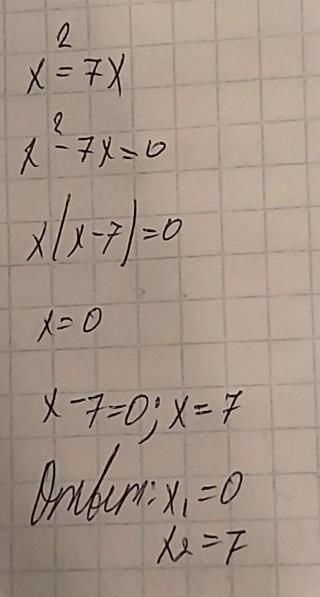 x² = 7x
x² - 7x = 0
x(x-7) = 0
x = 0
x - 7 = 0; x = 7
Ответ: x₁ = 0
x₂ = 7